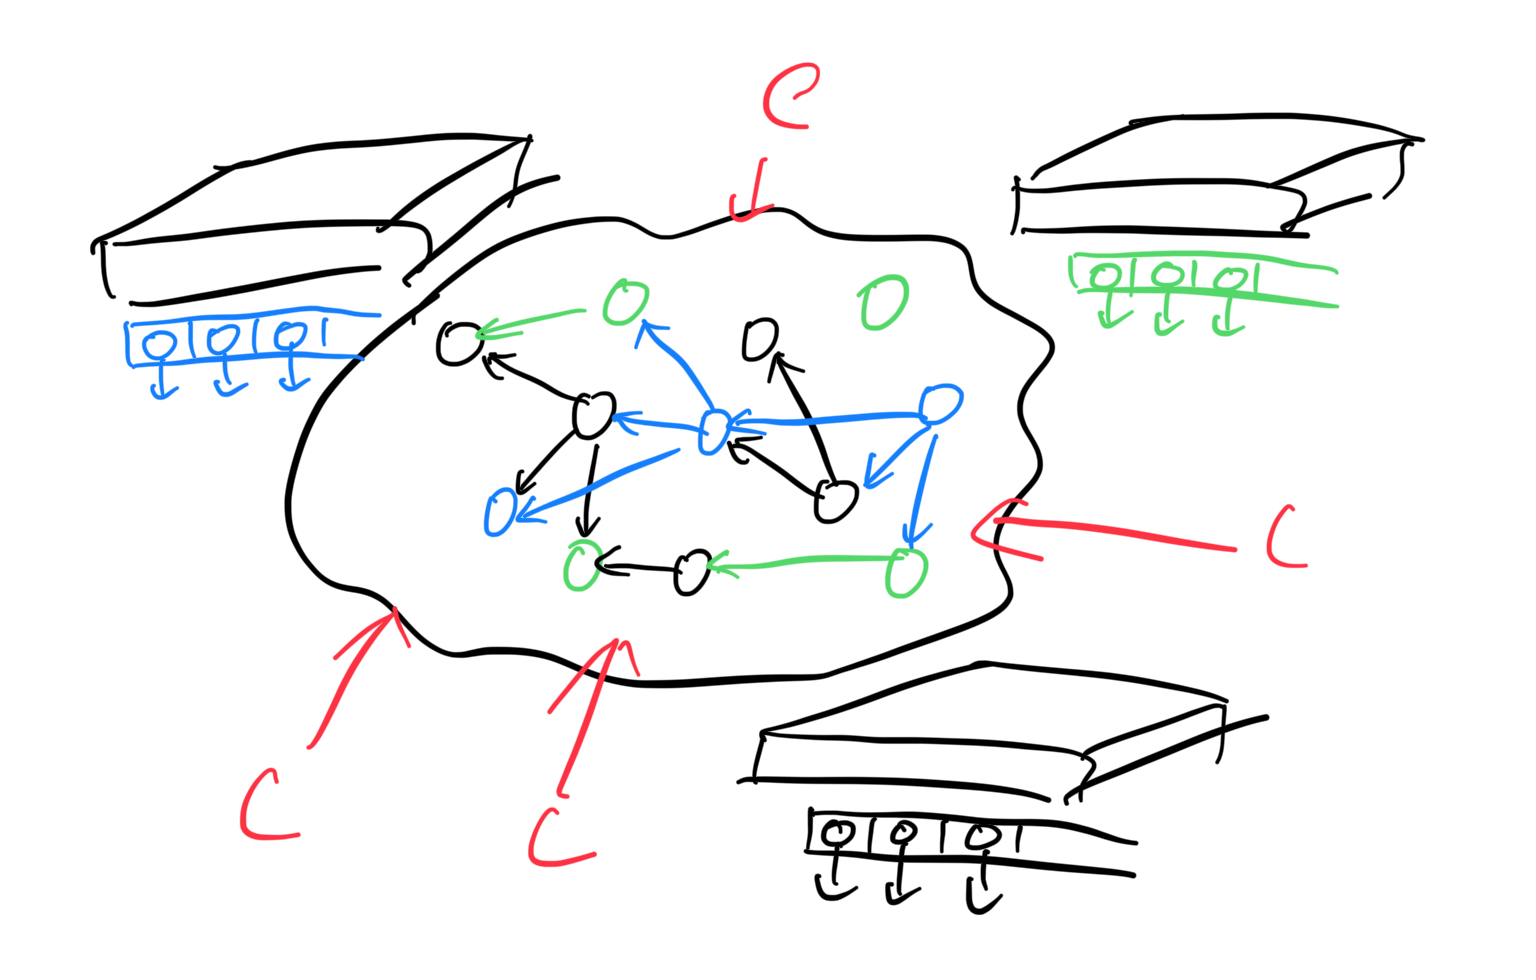 C
C
C
C